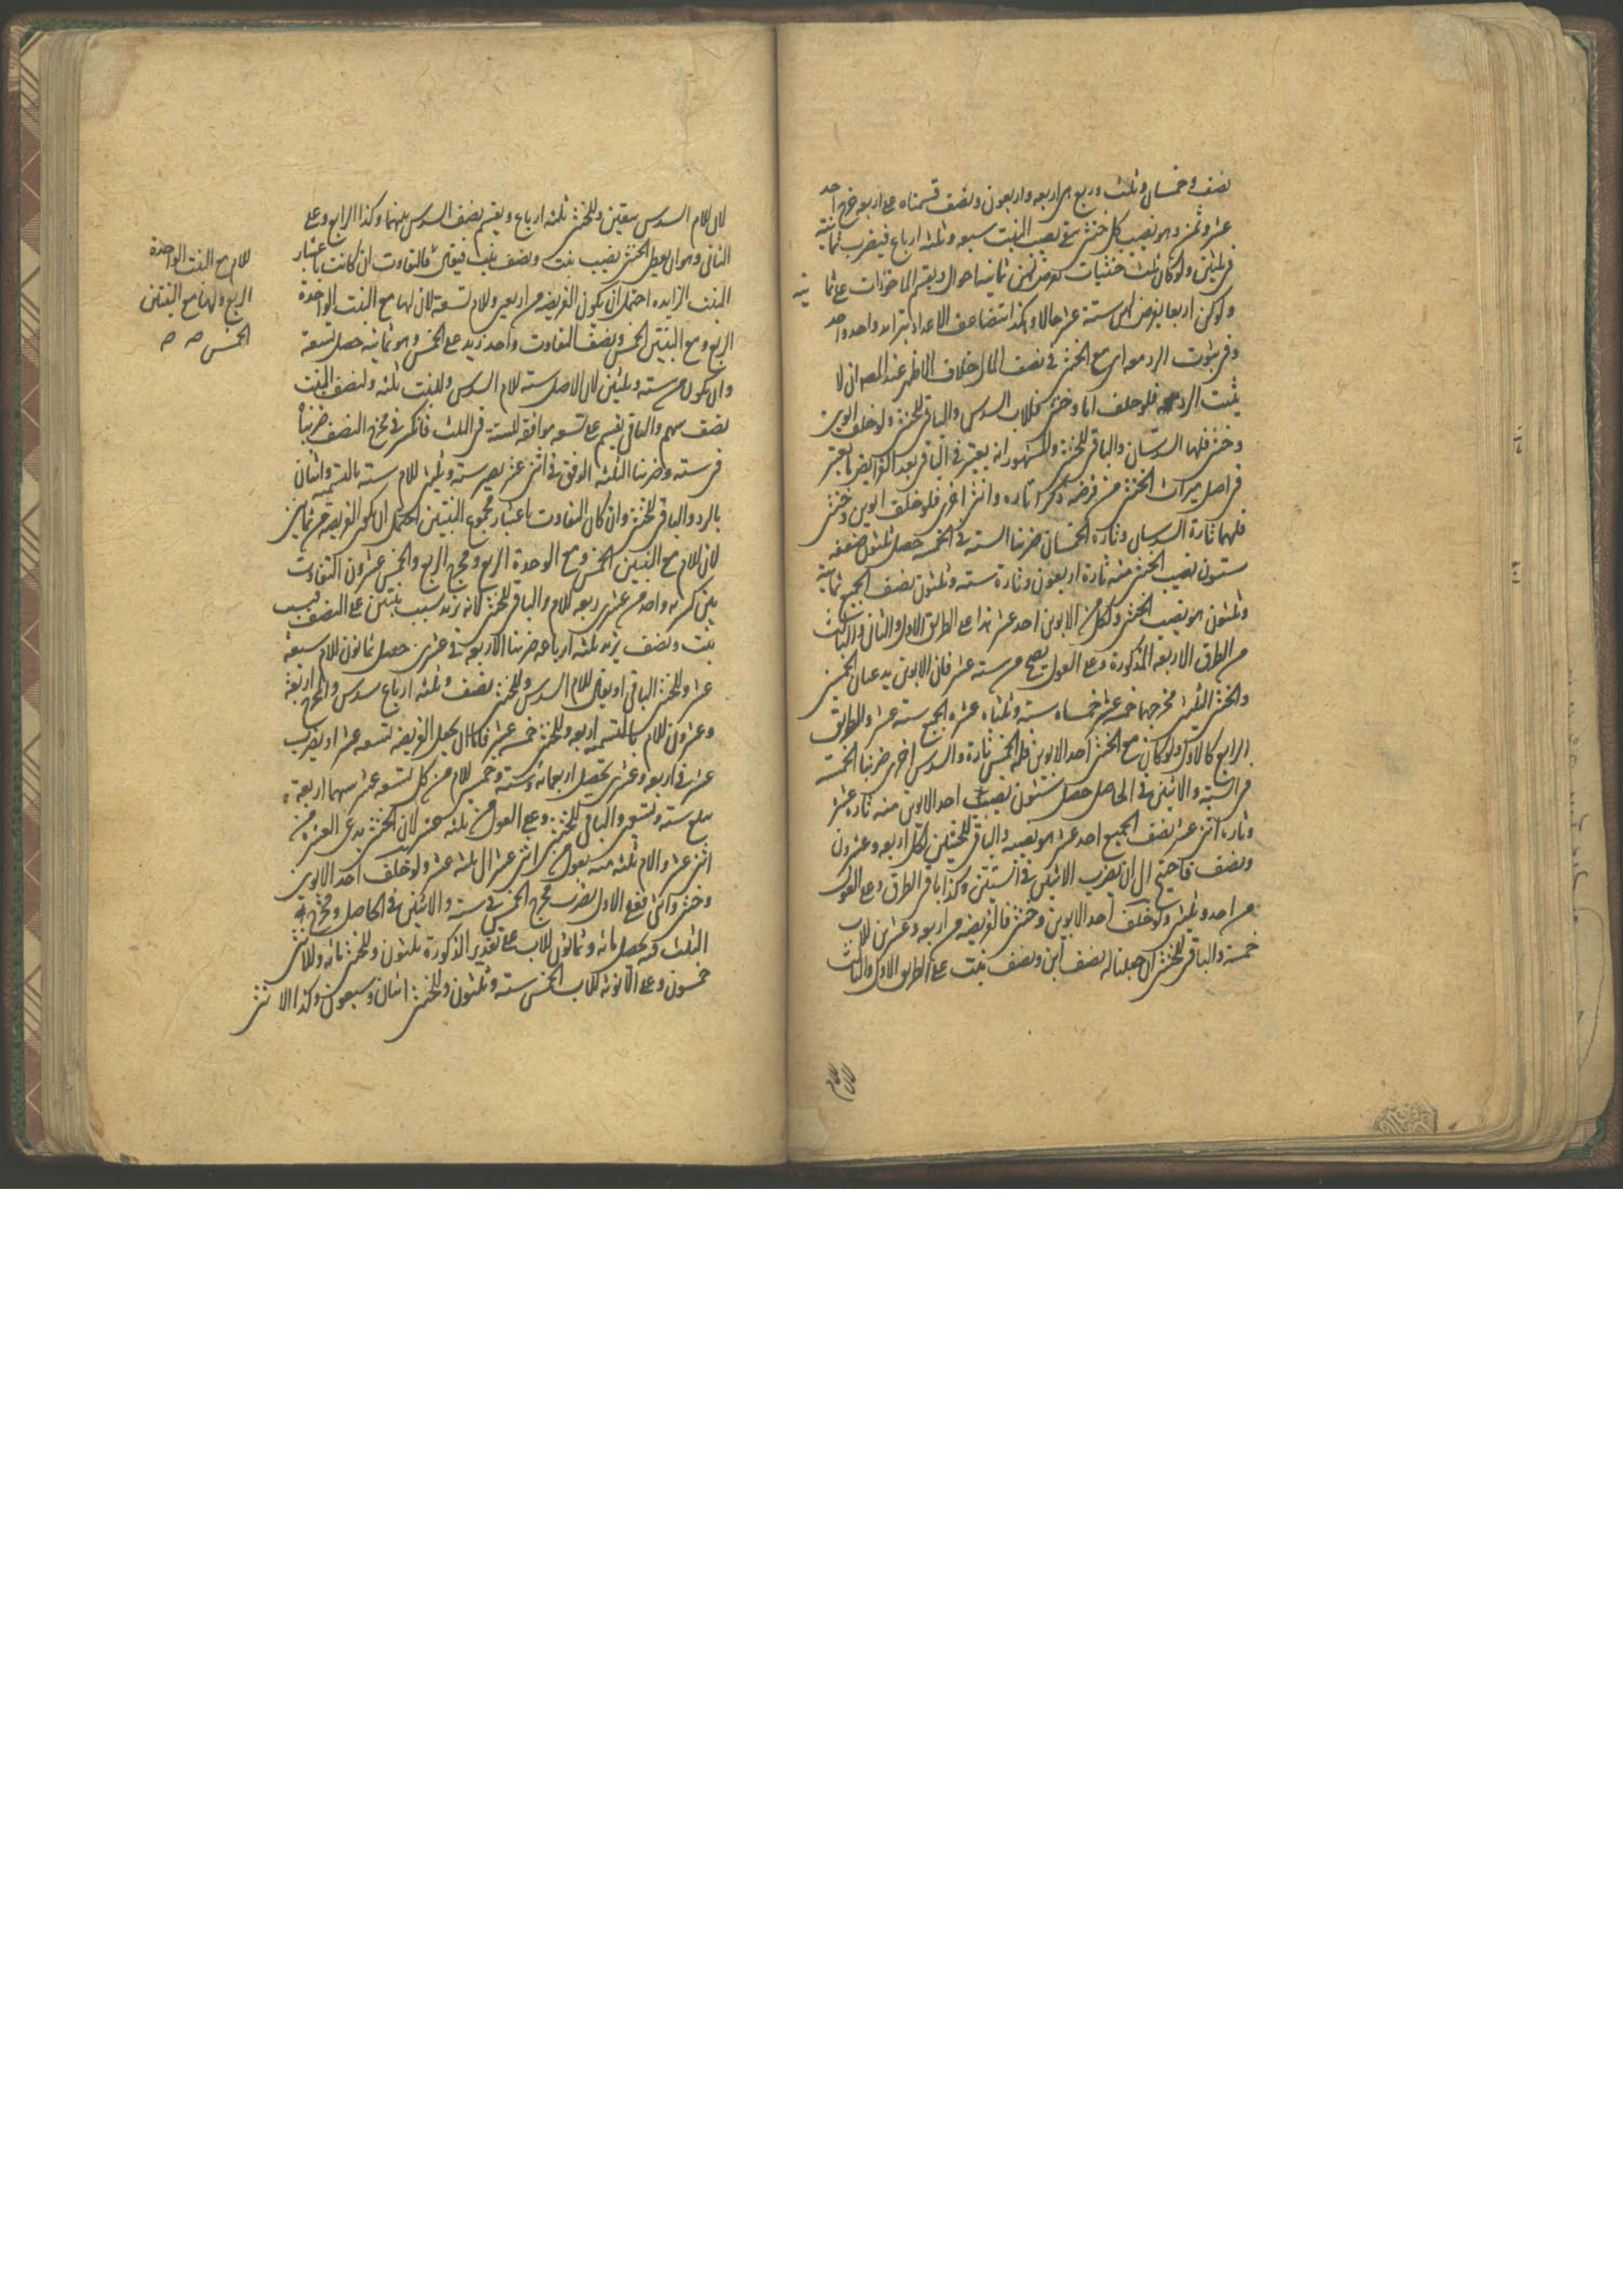 نصف وخمسان وثلث وربع هى اربعه واربعون ونصف قسمناه على اربعه خرج احد
عشر وثمن وهو نصيب كل خنثى بقى نصيب البنت سبعه وثلثه ارباع فيضرب ثمانية
فى ثلثين ولو كان ثلث خنثيات تفرض لهن ثمانيه احوال ويقسم الماخوذات على ثما
نيه
ولو كن اربعا يفرض لهن ستة عشر حالا وهكذا تتضاعف الاعداد بتزايد واحد واحد
وفى ثبوت الرد مواى مع الخنثى فى نصف المال خلاف الاظهر عند المص ان لا
يثبت الرد فلو خلف ابا وخنثى فللاب السدس والباقى للخنثى ولو خلف ابوين
وخنثى فلهما السدسان والباقى للخنثى والمشهور انه يعتبر فى الباقى بعد الفرايض ما يعتبر
فى اصل ميراث الخنثى من فرضه ذكرا تاره وانثى اخرى فلو خلف ابوين وخنثى
فلهما تارة السدسان وتارة الخمسان ضربنا الستة فى الخمسة حصل ثلثون ضعفه
ستون نصيب الخنثى منه تارة اربعون وتارة ستة وثلثون نصف الجميع ثمانية
وثلثون هو نصيب الخنثى ولكل من الابوين احد عشر هذا على الطريق الاول والثانى والثالث
من الطرق الاربعه المذكورة وعلى العول يصح من ستة عشر فان الابوين يدعيان الخمسين
والخنثى الثلثين مخرجهما خمسه عشر خمساه ستة وثلثاه عشره الجميع ستة عشر والطريق
الرابع كالاول ولو كان مع الخنثى احد الابوين فله الخمس تارة والسدس اخرى ضربنا الخمسة
فى الستة والاثنين فى الحاصل حصل ستون نصيب احد الابوين منه تارة عشر
وتاره اثنى عشر نصف الجميع احد عشر هو نصيبه والباقى للخنثيين لكل اربعه وعشرون
ونصف فاحتيج الى ان تضرب الاثنين فى الستين وكذا باقى الطرق وعلى العول
من احد وثلثين ولو خلف احد الابوين وخنثى فالفريضه من اربعه وعشرين للاب
خمسة والباقى للخنثى ان جعلنا له نصف ابن ونصف بنت على الطريق الاول والثالث
لان للام
لان للام السدس بيقين وللخنثى ثلثه ارباع ويقسم نصف السدس بينهما وكذا الرابع وعلى
الثانى وهو ان يعطى الخنثى نصيب بنت ونصف بنت فيقال فالتفاوت ان كانت باعتبار
البنت الزايده احتمل ان يكون الفريضه من اربعين وللام تسعة لان لها مع البنت الواحدة
الربع ومع البنتين الخمس ونصف التفاوت واحد زيد على الخمس وهو ثمانيه حصل تسعة
وان يكون من ستة وثلثين لان الاصل سته للام السدس وللبنت ثلثه ولنصف البنت
نصف سهم والباقى يقسم على تسعه موافقه للسته فى الثلث فانكسر فى مخرج النصف ضربناه
فى سته وضربنا الثلثه الوفق فى اثنى عشر يصير سته وثلثين للام ستة بالتسميه واثنان
بالرد والباقى للخنثى وان كان التفاوت باعتبار مجموع البنتين احتمل ان يكون الفريضه من ثمانين
لان للام مع البنتين الخمس ومع الوحدة الربع ومخرج الربع والخمس عشرون التفاوت
بنت ونصف يزيد ثلثه ارباعه ضربنا الاربعه فى عشرين حصل ثمانون للام سبعه
عشر وللخنثى الباقى او يقال للام السدس وللخنثى نصف وثلثه ارباع سدس والمخرج اربعة
وعشرون للام بالتسميه اربعه وللخنثى خمسه عشر فاما ان يجعل الفريضه تسعه عشر او يضرب
عشر فى اربعه وعشرين يحصل اربعمائه وستة وخمسين للام من كل تسعه عشر سهما اربعة
يبلغ سته وتسعين والباقى للخنثى وعلى العول من ثلثه عشر لان الخنثى يدعى العشره من
اثنى عشر والام ثلثه منه يعول من اثنى عشر الى ثلثه عشر ولو خلف احد الابوين
وخنثى وانثى فعلى الاول يضرب مخرج الخمس فى ستة والاثنين فى الحاصل ومخرج
الثلث فيه يحصل مائه وثمانون للاب على تقدير الذكورة ثلثون وللخنثى مائه وللانثى
خمسون وعلى الانوثه للاب الخمس ستة وثلثون وللخنثى اثنان وسبعون وكذا الانثى
للام مع البنت الواحدة
الربع ولها مع البنتين
الخمس صح صح